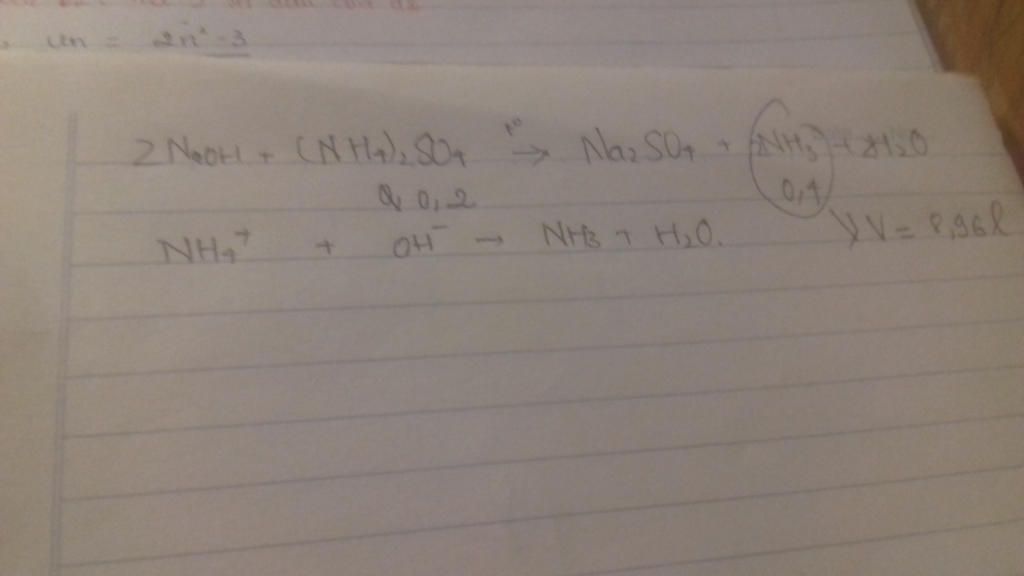 un = 2n² - 3
2NaOH + (NH4)2SO4 t° → Na2SO4 + 2NH3 + 2H2O
0,2 0,4
NH4+ + OH- → NH3 + H2O. V = 8,96l